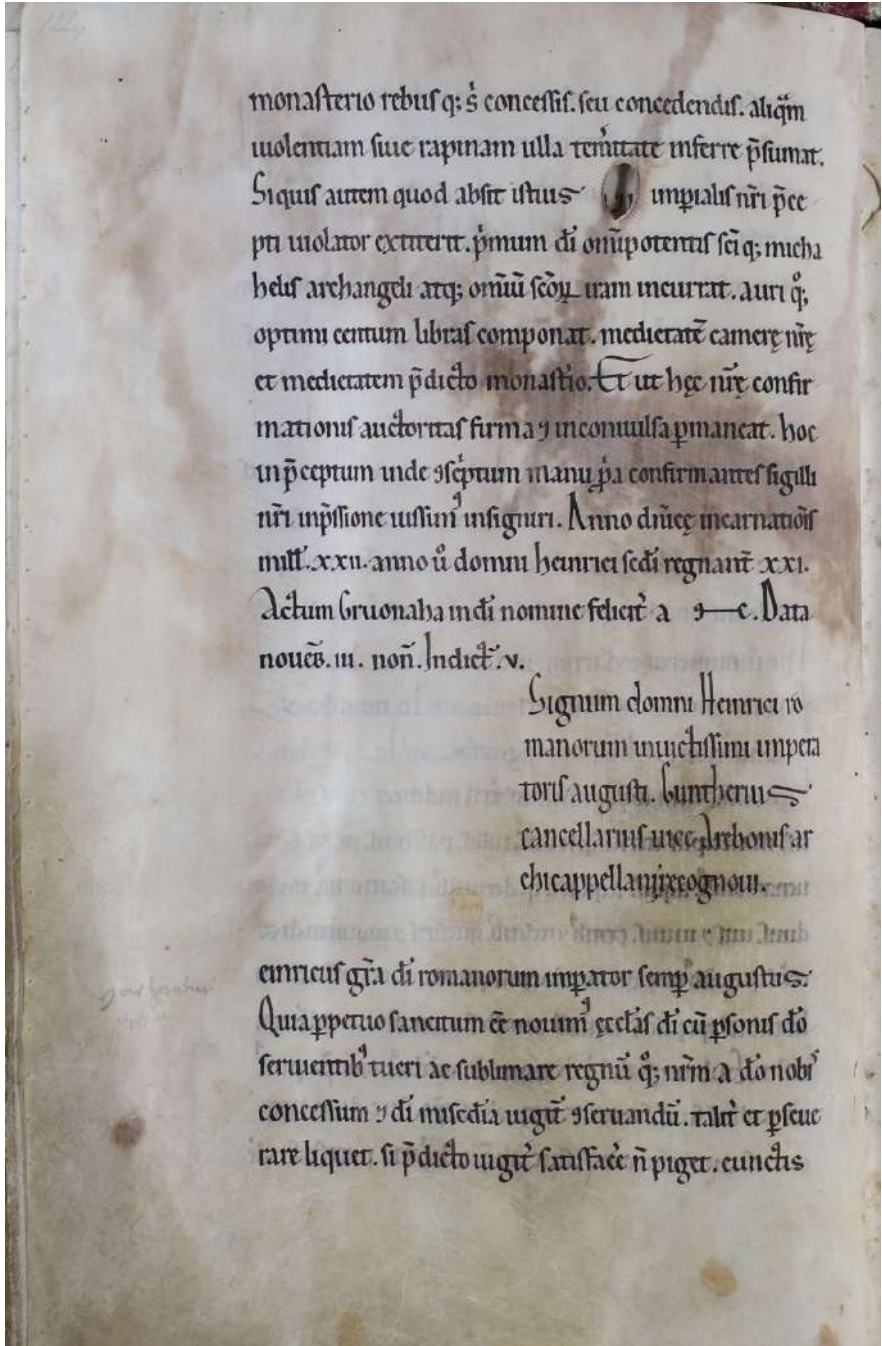 monasterio rebusq; s̓ concessis. seu concedendis. aliqͣm
uiolentiam siue rapinam ulla tem̓itate inferre p̄sumat.
Siquis autem quod absit istius imꝑialis nr̄i p̄ce
pti uiolator extiterit. p̓mum dī omīpotentis sc̄iq; micha
helis archangeli atq; omiū sc̄oꝝ iram incurrat. auriqͦ;
optimi centum libras componat. medietatē camerę nr̄ę
et medietatem p̄dicto monast̓io. Et ut hęc nr̄ę confir
mationis auctoritas firma ⁊ inconuulsa ꝑmaneat. hoc
inp̄ceptum inde ꝯsc̓ptum manu ꝓp̓a confirmantes sigilli
nr̄i inp̄ssione iussimꝰ insigniri. Anno dn̄icę incarnatiōis
mill̄. xxii. anno ů domni heinrici sc̄di regnant̄ xxi.
Actum Gruonaha in dī nomine felicit̓ a ꝯ c. Data
nouēb. iii. noñ. Indict̄. v.
Signum domni Heinrici ro
manorum inuictissimi impera
toris augusti. Guntherius
cancellarius uice Arebonis ar
chicappellani recognoui.
einricus gr̄a dī romanorum imꝑator semꝑ augustus.
Quia ꝑpetuo sancitum ēē nouimꝰ ęccl̄as dī cū ꝑsonis dō
seruientibꝰ tueri ac sublimare regnū qͦ; nr̄m a dō nobis
concessum ⁊ dī mis̄cdia iugit̄ ꝯseruandū. talit̄ et ꝑseue
rare liquet. si p̄dicto iugit̓ satisfac̓e n̄ piget. cunctis